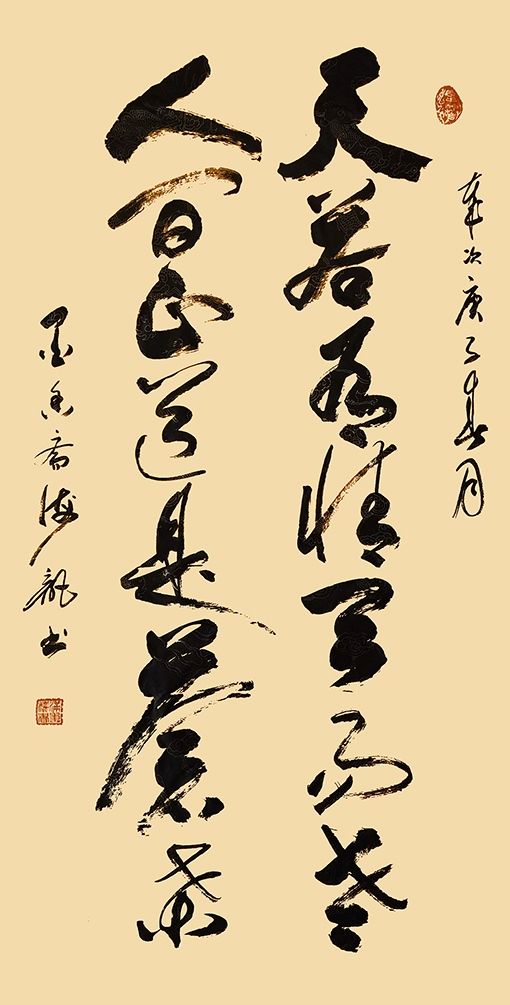 岁次庚子春月
天若有情天亦老
人间正道是蒼桑
墨香斋海龍书